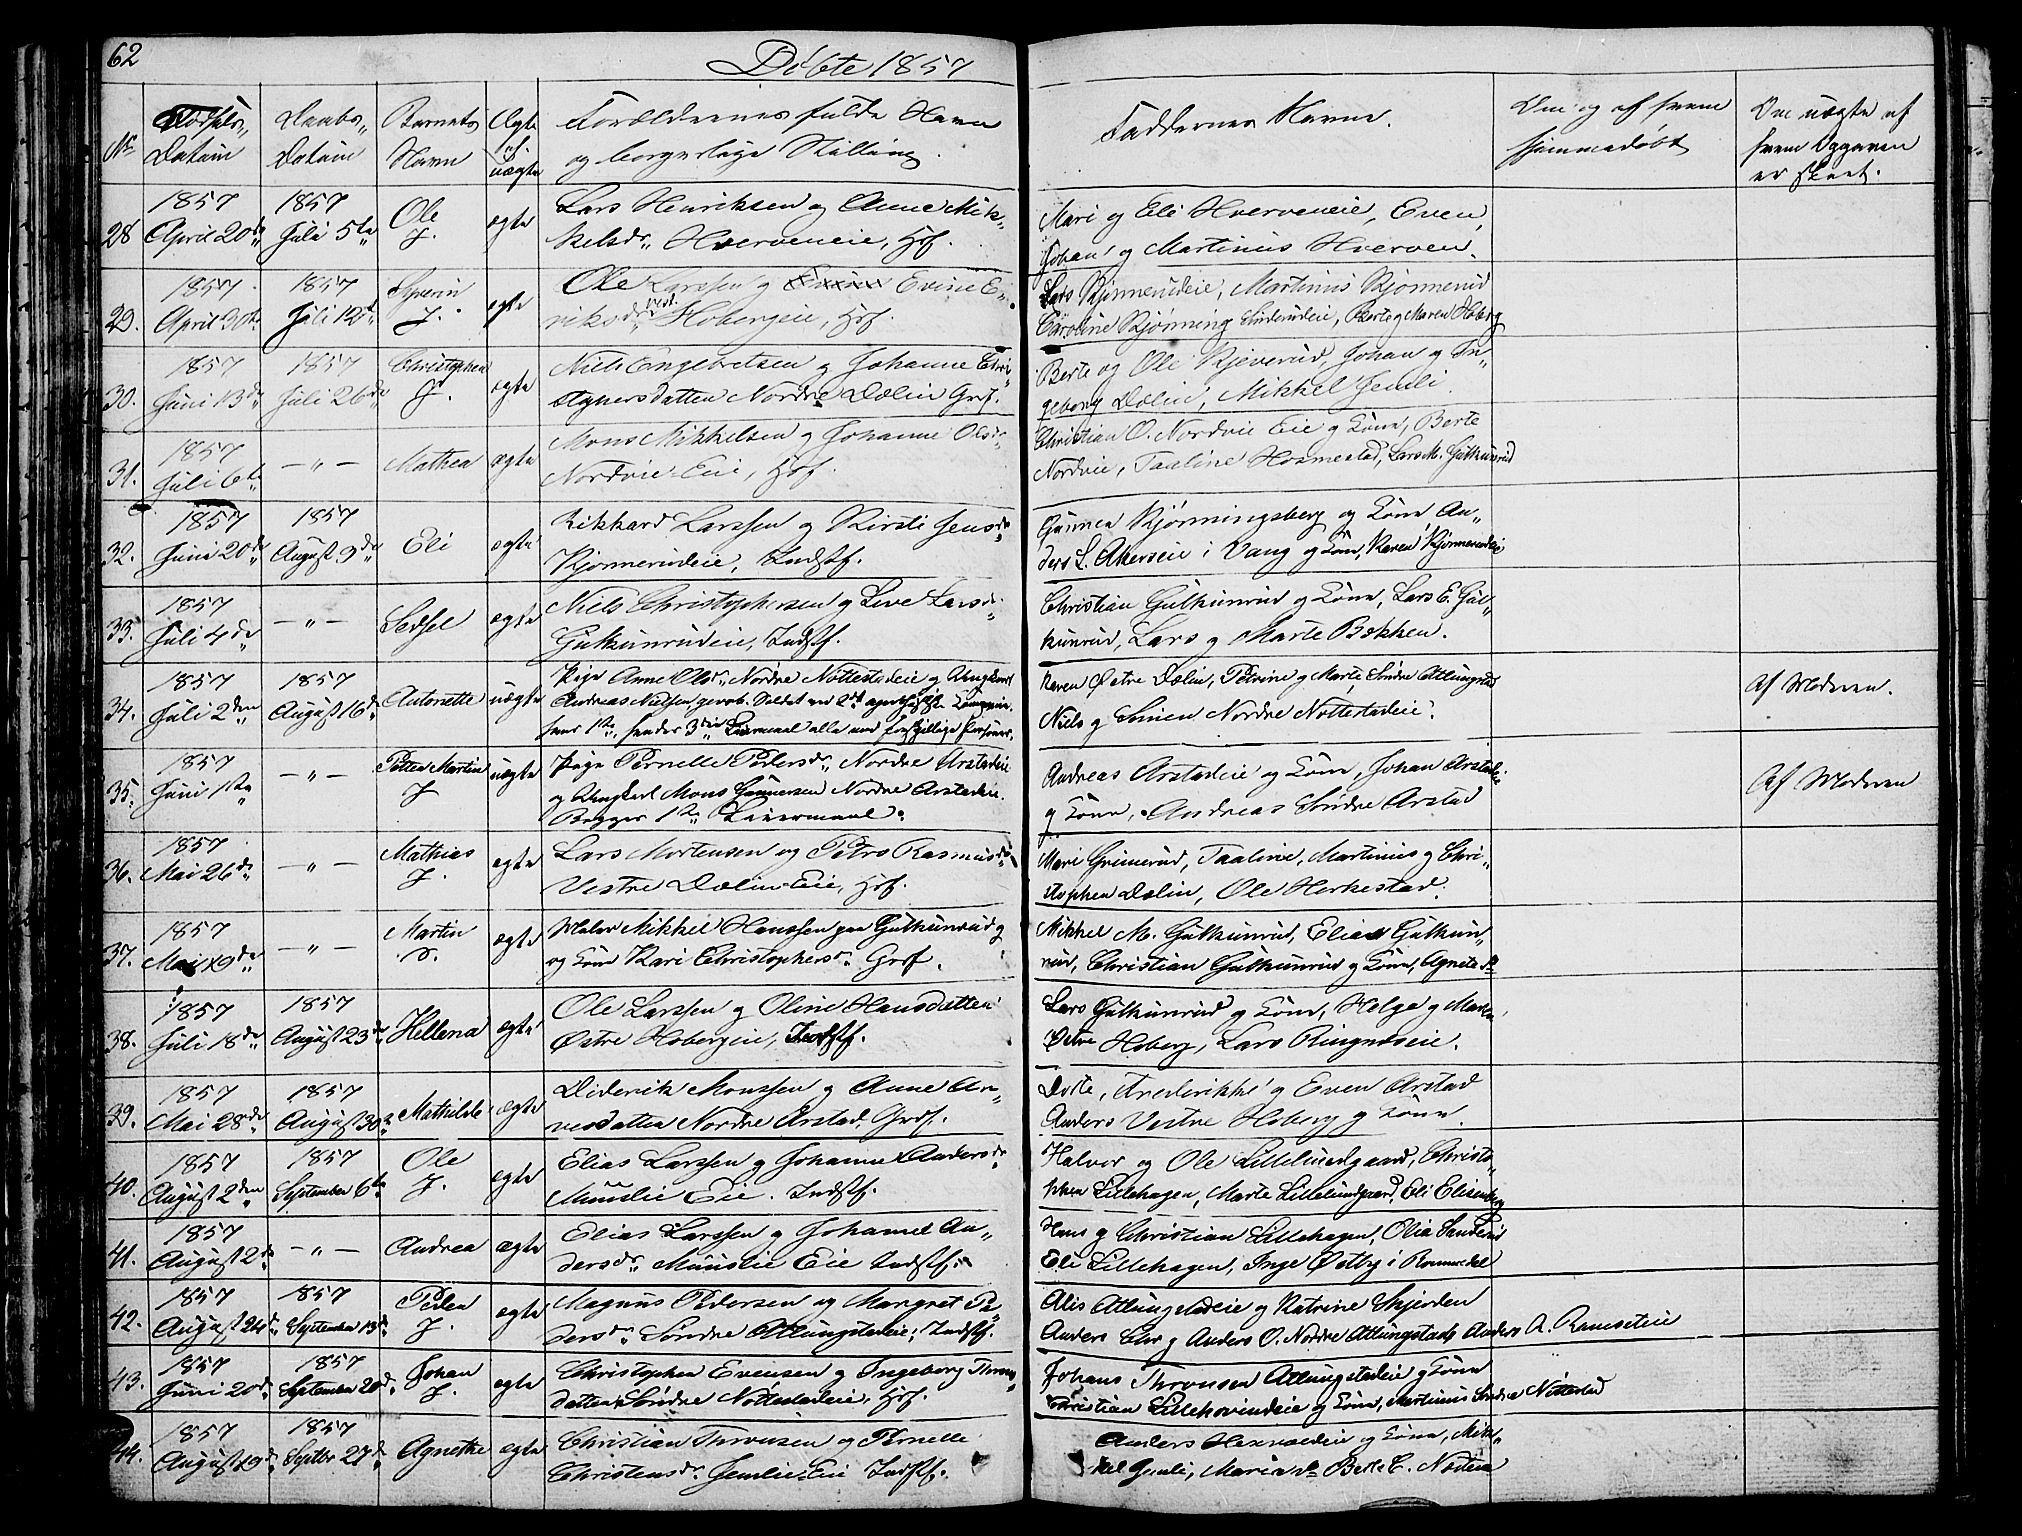 62
Döbte 1857
No
Födsels Datum
Daabs Datum
Barnets Navn
Ægte el. uægte
Forældrenes fulde Navn
og borgerlige Stilling.
Faddernes Navne.
Om og af hvem
hjemmedöbt
Om uægte af
hvem Opgaven
er skeet.
28 1857 April 20de 1857 Juli 5te Ole J. ægte
Lars Henriksen og Anne Mik-
kelsdr. Hverveneie, Hf.
Mari og Eli Hverveneie, Even,
Johan og Martinus Hverven.
29. 1857 April 30te 1857 Juli 12te Syverin J. ægte
Ole Larssen og Evine E-
riksdr. vest. Hobergeie, Hf.
Lars Kjönnerudeie, Martinus Kjönnerud
Caroline Kjönning Berte og Maren Hoberg
30. 1857 Juni 13de 1857 Juli 26de Christopher J. ægte
Niels Engebretsen og Johanne Chri-
stophersdatter Nordre Dælin Grf.
Berte og Ole Kjeverud, Johan og In-
geborg Dælin, Mikkel Jemli
31. 1857 Juli 6te —„— Mathea ægte
Mons Mikkelsen og Johanne Olsdr
Nordvie Eie, Hf.
Christian O. Nordvie Eie og Kone, Berte
Nordvie, Taaline Hosmestad, Lars M. Gulkunrud
32. 1857 Juni 20de 1857 August 9de Eli ægte
Rikhard Larssen og Kirsti Jensdr
Kjönnerudeie, Indstf.
Gunnar Kjönningsberg og Kone An-
ders L. Akerseie i Vang og Kone, Karen Kjönnerudeie
33. 1857 Juli 4de —„— Sedsel ægte
Niels Christophersen og Live Larsdr.
Gulkunrudeie, Indstf.
Christian Gulkunrud og Kone, Lars E. Gul-
kunrud, Lars og Marte Bækken.
34. 1857 Juli 2den 1857 August 16de Antonette uægte
Pige Anne Olsdr. Nordre Nöttestadeie og Ungkarl
Andreas Nielsen, gevorb. Soldat ved 2det Kompagni.
hans 1ste, hendes 3die Leiermaal alle med forskjellige Personer.
Karen Østre Dælin, Petrine og Marte Söndre Attlungstad
Niels og Simen Nordre Nöttestadeie.
Af Moderen.
35. 1857 Juni 1ste —„— Petter Martin J uægte
Pige Pernelle Pedersdr. Nordre Arstadeie
og Ungkarl Mons Gunnersen Nordre Arstadeie.
Begges 1ste Leiermaal.
Andreas Arstadeie og Kone, Johan Arstadeie
og Kone, Andreas Söndre Arstad
Af Moderen
36. 1857 Mai 26de —„— Mathias J. ægte
Lars Mortensen og Petro Rasmusdr
Vestre Dælin-Eie, Hf.
Mari Grimerud, Taaline, Martinus og Chri-
stopher Dælin, Ole Horkestad.
37. 1857 Mai 19de —„— Martin ægte
Maler Mikkel Hanssen paa Gulkunrud og
og Kone Kari Christophersdr. Grf.
Mikkel M. Gulkunrud, Elias Gulkun-
rud, Christian Gulkunrud og Kone, Agnete
38. 1857 Juli 18de 1857 August 23de Hellena ægte
Ole Larssen og Oline Hansdatter
Østre Hobergeie, Indstf.
Lars Gulkunrud og Kone, Helge og Maren
Østre Hoberg, Lars Ringnæseie.
39. 1857 Mai 28de 1857 August 30te Mathilde ægte
Diderik Monssen og Anne Ar-
vesdatter Nordre Arstad. Grf.
Dorte, Frederikke og Even Arstad
Anders Vestre Hoberg og Kone.
40. 1857 August 2den 1857 September 6te Ole J. ægte
Elias Larssen og Johanne Andersdr.
Muuslie Eie. Indstf.
Halvor og Ole Lillelundgaard, Christo-
pher Lillehagen, Marte Lillelundgaard, Eli Elisenberg
41. 1857 August 2de —„— Andrea ægte
Elias Larssen og Johanne An-
dersdr. Muuslie Eie Indstf.
Hans og Christian Lillehagen, Olia
Eli Lillehagen, Inge Østby i Romedal
42. 1857 August 24de 1857 September 13de Peder J. ægte
Magnus Pedersen og Margret Pe-
dersdr. Söndre Attlungstadeie, Indstf.
Alis Attlungstadeie og Katrine Skjerden
Anders Chr. og Anders O. Nordre Attlungstad Anders A. Ramseteie
43. 1857 Juni 20de 1857 September 20de Johan J. ægte
Christopher Evensen og Ingeborg Thron-
datter Söndre Nöttestadeie, Hf.
Johans Thronsen Attlungstadeie og Kone
Christian Lillehovendeie og Kone, Martinus Söndre Nöttestad
44. 1857 August 19de 1857 Septbr 27de Agnethe ægte
Christian Thronsen og Pernelle
Christensdr. Jemlie-Eie Indstf.
Anders Hexvoldeie og Kone, Mik-
kel Jemli, Maria Berte C.